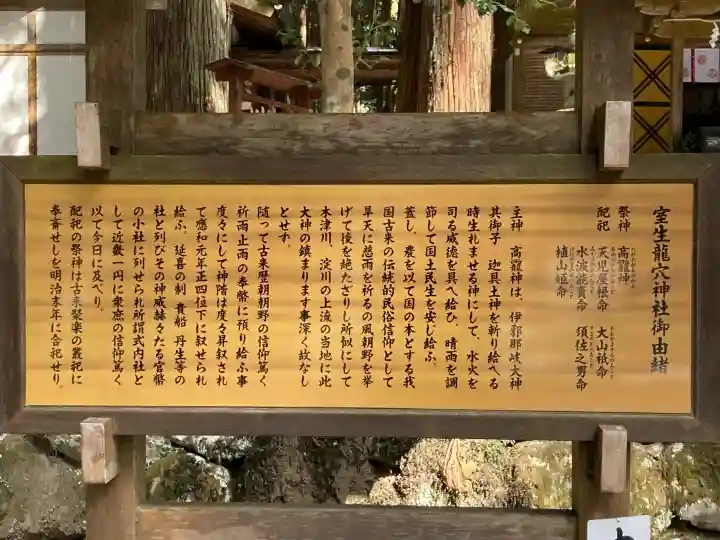 室生龍穴神社御由緒
祭神 高龗神
配祀 天児屋根命 大山祇命
水波能賣命 須佐之男命
植山姫命
主神 高龗神は、伊邪那岐大神
其御子 迦具土神を斬り給へる
時生れませる神にして、水火を
司る威徳を具へ給ひ、晴雨を調
節して国土民生を安じ給ふ。
蓋し、農を以て国の本とする我
国古来の伝統的民俗信仰として
旱天に慈雨を祈るの風朝野を挙
げて後を絶たざりし所似にして
木津川、淀川の上流の当地に此
大神の鎮まります事深く故なし
とせず。
随って古来歴朝朝野の信仰篤く
祈雨止雨の奉幣に預り給ふ事
度々にして神階は度々昇叙され
て應和元年正四位下に叙せられ
給ふ。延喜の制 貴船 丹生等の
社と列びその神威赫々たる官幣
の小社に列せられ所謂式内社と
して近畿一円に衆庶の信仰篤く
以て今日に及べり。
配祀の祭神は古来聚楽の叢祀に
奉斎せしを明治末年に合祀せり。